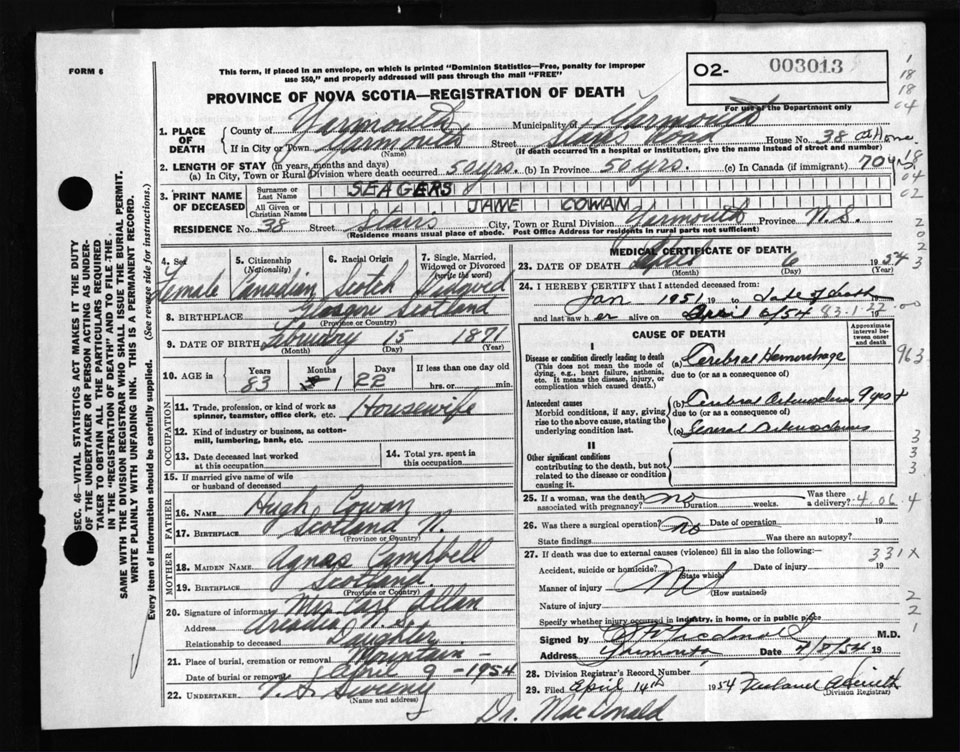 FORM 6
This form, if placed in an envelope, on which is printed "Dominion Statistics—Free, penalty for improper
use $50," and properly addressed will pass through the mail "FREE"
O2- 003013
For use of the Department only
PROVINCE OF NOVA SCOTIA—REGISTRATION OF DEATH
1. PLACE OF DEATH
County of Yarmouth Municipality of Yarmouth
If in City or Town Yarmouth Street House No. 38 at Home
(Name) (If death occurred in a hospital or institution, give the name instead of street and number)
2. LENGTH OF STAY (in years, months and days)
(a) In City, Town or Rural Division where death occurred 50 yrs. (b) In Province 50 yrs. (c) In Canada (if immigrant) 70 yrs
3. PRINT NAME OF DECEASED
Surname or Last Name SEAGERS
All Given or Christian Names JANE COWAN
RESIDENCE No. 38 Street Starrs City, Town or Rural Division Yarmouth Province N.S.
(Residence means usual place of abode. Post Office Address for residents in rural parts not sufficient)
4. Sex Female
5. Citizenship (Nationality) Canadian
6. Racial Origin Scotch
7. Single, Married, Widowed or Divorced (write the word) Widowed
8. BIRTHPLACE Glasgow Scotland
(Province or Country)
9. DATE OF BIRTH February 15 1871
(Month) (Day) (Year)
10. AGE in Years Months Days If less than one day old
83 1 22 hrs. or min.
OCCUPATION
11. Trade, profession, or kind of work as spinner, teamster, office clerk, etc. Housewife
12. Kind of industry or business, as cotton-mill, lumbering, bank, etc.
13. Date deceased last worked at this occupation
14. Total yrs. spent in this occupation
15. If married give name of wife or husband of deceased
FATHER
16. Name Hugh Cowan
17. Birthplace Scotland
(Province or Country)
MOTHER
18. Maiden Name Agnes Campbell
19. Birthplace Scotland
(Province or Country)
20. Signature of informant Mrs Allan
Address Arcadia N.S.
Relationship to deceased Daughter
21. Place of burial, cremation or removal Mountain -
Date of burial or removal April 9 - 1954
22. Undertaker V. S. Sweeny
(Name and address)
MEDICAL CERTIFICATE OF DEATH
23. DATE OF DEATH April 6 1954
(Month) (Day) (Year)
24. I HEREBY CERTIFY that I attended deceased from:
Jan 1951 19 to date of death
and last saw her alive on April 6/54 19 83-1-22
CAUSE OF DEATH
Approximate interval between onset and death
I
Disease or condition directly leading to death
(This does not mean the mode of dying, e.g., heart failure, asthenia, etc. It means the disease, injury, or complication which caused death.)
(a) Cerebral Hemorrhage
due to (or as a consequence of)
Antecedent causes
Morbid conditions, if any, giving rise to the above cause, stating the underlying condition last.
(b) Cerebral Arteriosclerosis 9 yrs +
due to (or as a consequence of)
(c) General Arteriosclerosis
II
Other significant conditions
contributing to the death, but not related to the disease or condition causing it.
25. If a woman, was the death associated with pregnancy? no Duration weeks. Was there a delivery?
4.06.4
26. Was there a surgical operation? no Date of operation 19
State findings Was there an autopsy?
27. If death was due to external causes (violence) fill in also the following:—
331X
Accident, suicide or homicide? (State which) Date of injury 19
Manner of injury
(How sustained)
Nature of injury
Specify whether injury occurred in industry, in home, or in public place
Signed by Macdonald M.D.
Address Yarmouth Date 4/8/54 19
28. Division Registrar's Record Number
29. Filed April 14th 1954
(Division Registrar)
Dr. MacDonald
SEC. 46—VITAL STATISTICS ACT MAKES IT THE DUTY
OF THE UNDERTAKER OR PERSON ACTING AS UNDERTAKER
TO OBTAIN ALL THE PARTICULARS REQUIRED
IN THE "REGISTRATION OF DEATH" AND TO FILE THE
SAME WITH THE DIVISION REGISTRAR WHO SHALL ISSUE THE BURIAL PERMIT.
WRITE PLAINLY WITH UNFADING INK. THIS IS A PERMANENT RECORD.
Every item of information should be carefully supplied. (See reverse side for instructions.)